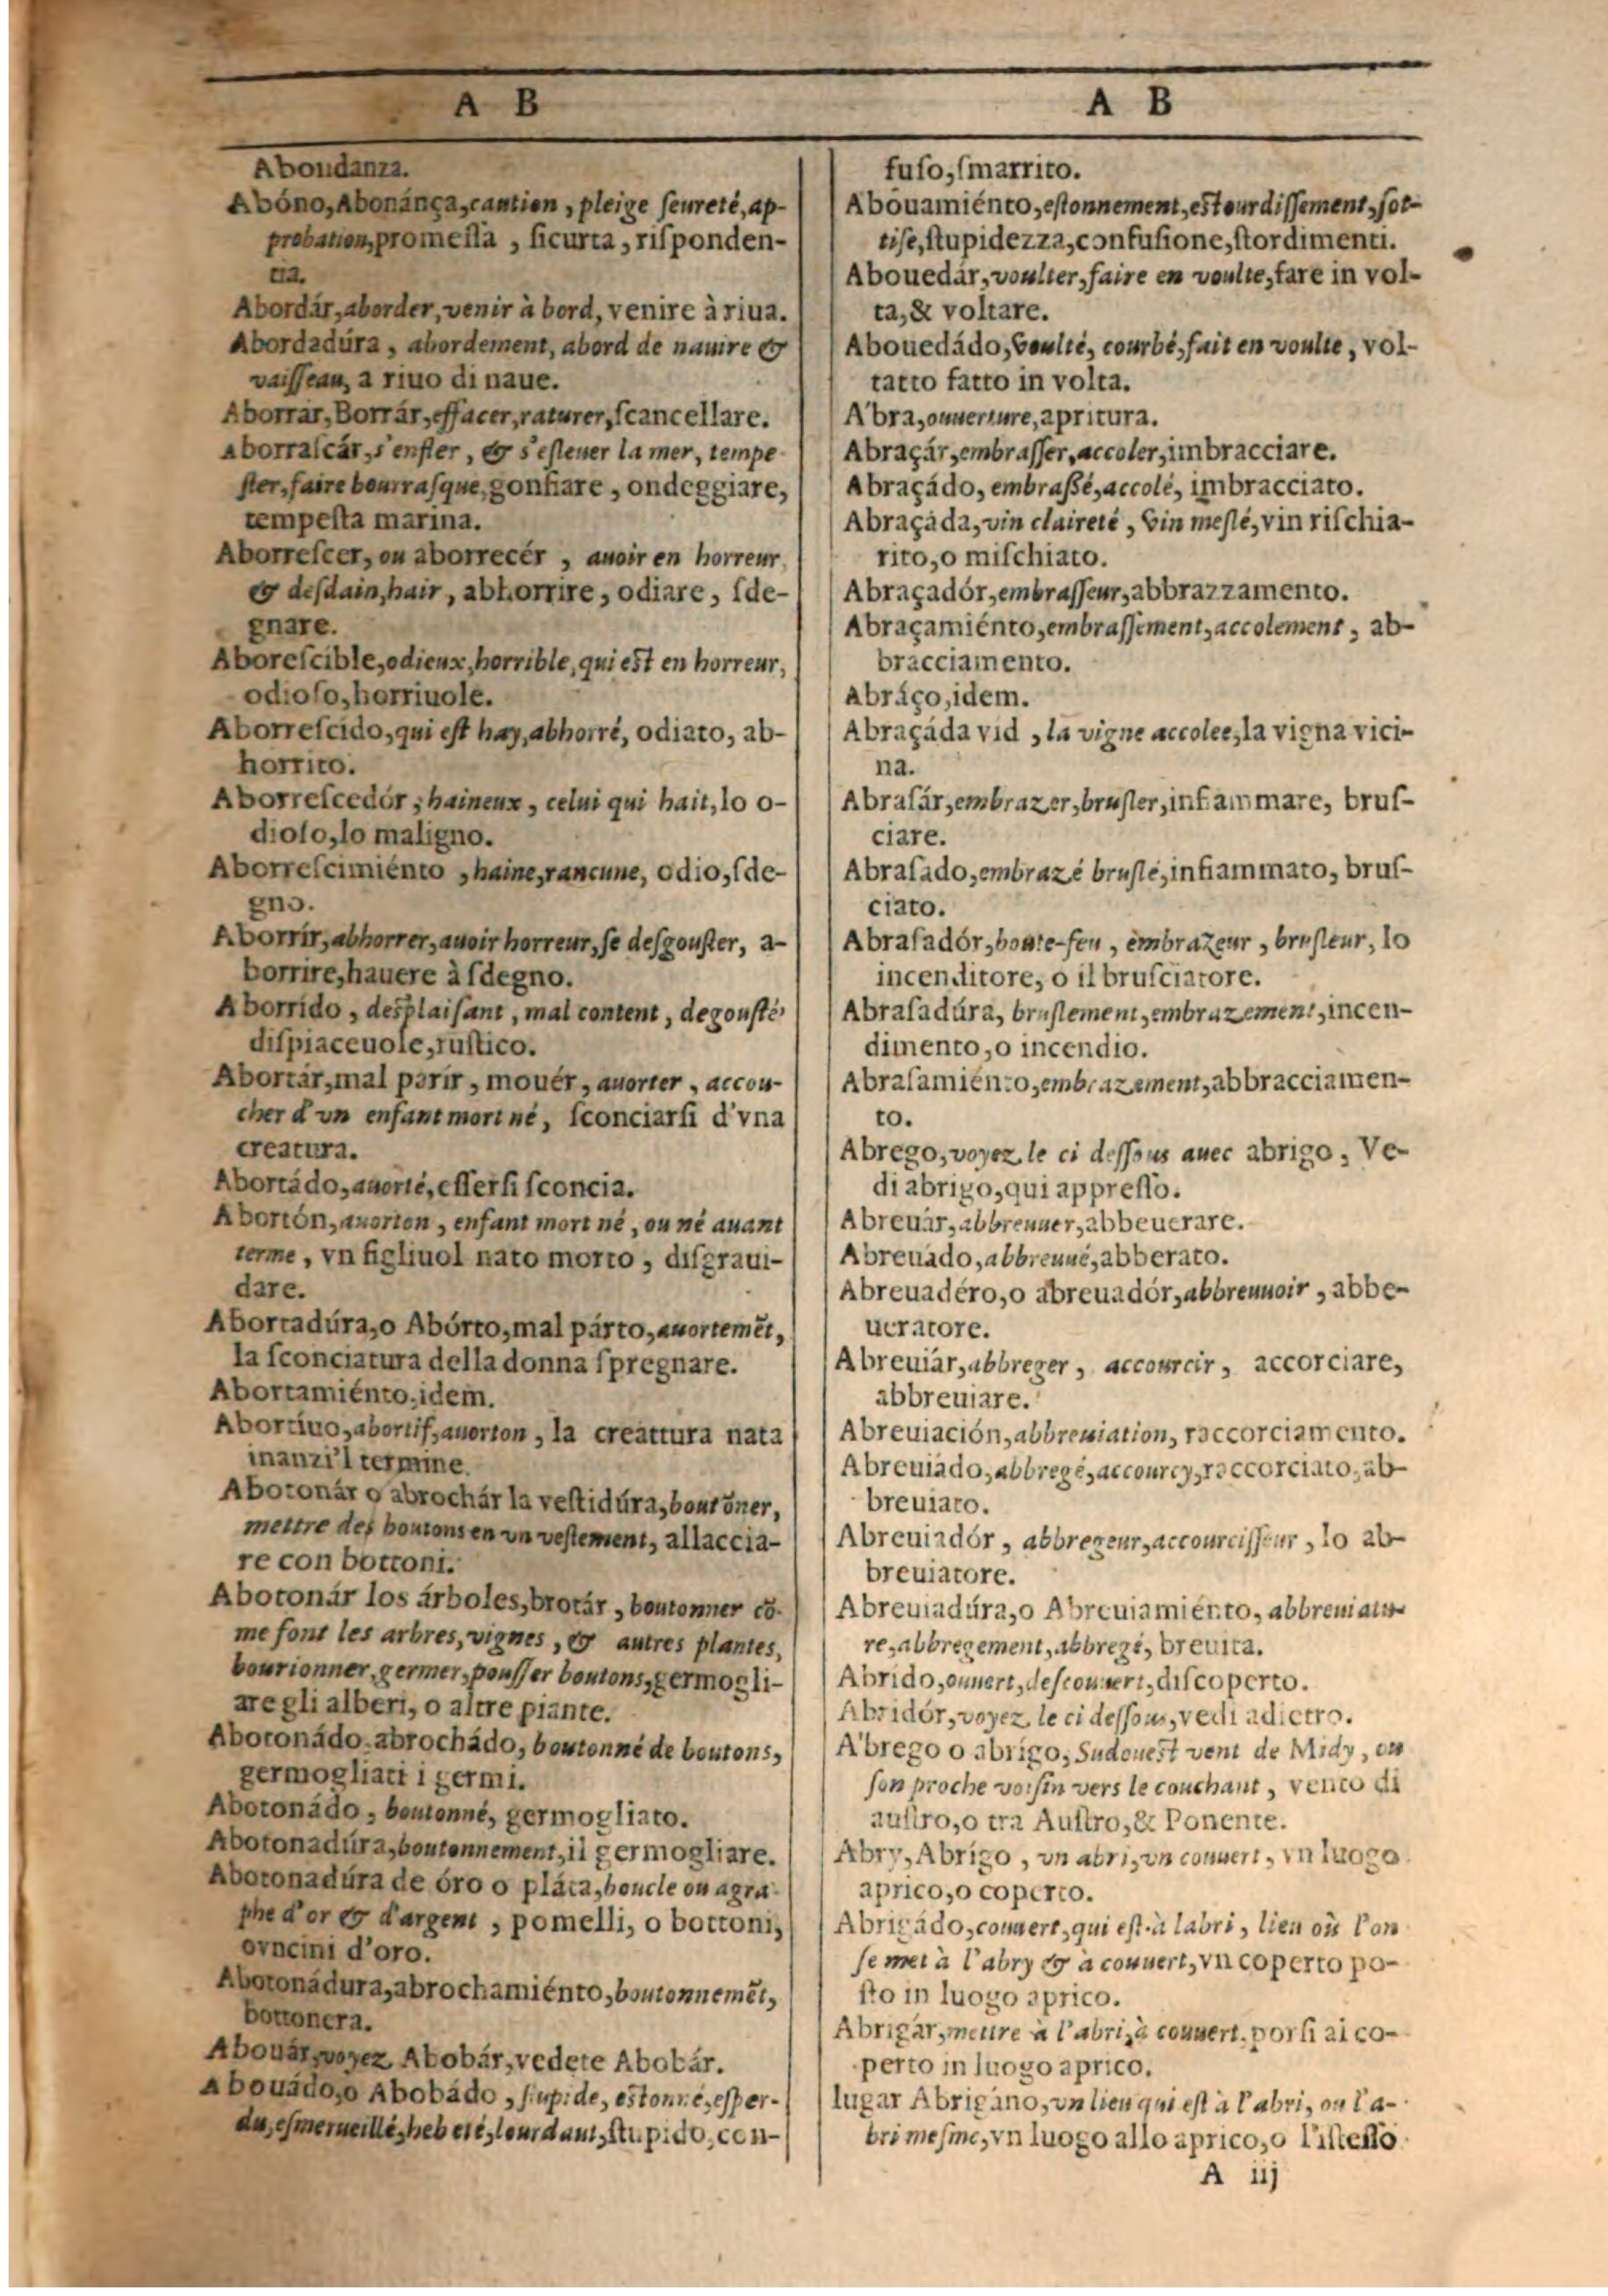 A B
Aboudanza.
Abóno, Abonánça, cantion, pleige seureté, ap-
probation, promessa, sicurta, risponden-
tia.
Abordár, aborder, venir à bord, venire à riua.
Abordadúra, abordement, abord de nauire &
vaisseau, a riuo di naue.
Aborrár, Borrár, effacer, raturer, scancellare.
Aborrascár, s'enfler, & s'esleuer la mer, tempe
ster, faire bourrasque, gonfiare, ondeggiare,
tempesta marina.
Aborrescer, ou aborrecér, auoir en horreur,
& desdain, hair, abhorrire, odiare, sde-
gnare.
Aborescible, odieux, horrible, qui est en horreur,
odioso, horriuole.
Aborrescido, qui est hay, abhorré, odiato, ab-
horrito.
Aborrescedór, haineux, celui qui hait, lo o-
dioso, lo maligno.
Aborrescimiénto, haine, rancune, odio, sde-
gno.
Aborrír, abhorrer, auoir horreur, se desgouster, a-
borrire, hauere à sdegno.
Aborrido, desplaisant, mal content, degousté,
dispiaceuole, rustico.
Abortár, mal parír, mouér, auorter, accou-
cher d'vn enfant mort né, sconciarsi d'vna
creatura.
Abortádo, auorté, essersi sconcia.
Abortón, auorton, enfant mort né, ou né auant
terme, vn figliuol nato morto, disgraui-
dare.
Abortadúra, o Abórto, mal párto, auortemẽt,
la sconciatura della donna spregnare.
Abortamiénto, idem.
Abortíuo, abortif, auorton, la creattura nata
inanzi'l termine.
Abotonár o abrochár la vestidúra, boutõner,
mettre des boutons en vn vestement, allaccia-
re con bottoni.
Abotonár los árboles, brotár, boutonner cõ-
me font les arbres, vignes, & autres plantes,
bourionner, germer, pousser boutons, germogli-
are gli alberi, o altre piante.
Abotonádo, abrochádo, boutonné de boutons,
germogliati i germi.
Abotonádo, boutonné, germogliato.
Abotonadúra, boutonnement, il germogliare.
Abotonadúra de óro o pláta, boucle ou agra
phe d'or & d'argent, pomelli, o bottoni,
ovncini d'oro.
Abotonádura, abrochamiénto, boutonnemẽt,
bottonera.
Abouár, voyez Abobár, vedete Abobár.
Abouádo, o Abobádo, stupide, estonné, esper-
du, esmerueillé, hebeté, lourdaut, stupido, con-
A B
fuso, smarrito.
Abouamiénto, estonnement, estourdissement, sot-
tise, stupidezza, confusione, stordimenti.
Abouedár, voulter, faire en voulte, fare in vol-
ta, & voltare.
Abouedádo, voulté, courbé, fait en voulte, vol-
tatto fatto in volta.
A'bra, ouuerture, apritura.
Abraçár, embrasser, accoler, imbracciare.
Abraçádo, embrassé, accolé, imbracciato.
Abraçáda, vin claireté, vin meslé, vin rischia-
rito, o mischiato.
Abraçadór, embrasseur, abbrazzamento.
Abraçamiénto, embrassement, accolement, ab-
bracciamento.
Abráço, idem.
Abraçáda vid, la vigne accolee, la vigna vici-
na.
Abrasár, embrazer, brusler, infiammare, brus-
ciare.
Abrasado, embrazé bruslé, infiammato, brus-
ciato.
Abrasadór, boute-feu, embrazeur, brusleur, lo
incenditore, o il brusciatore.
Abrasadúra, bruslement, embrazement, incen-
dimento, o incendio.
Abrasamiénto, embrazement, abbracciamen-
to.
Abrego, voyez le ci dessous auec abrigo, Ve-
di abrigo, qui appresso.
Abreuár, abbreuuer, abbeuerare.
Abreuádo, abbreuué, abberato.
Abreuadéro, o abreuadór, abbreuuoir, abbe-
ueratore.
Abreuiár, abbreger, accourcir, accorciare,
abbreuiare.
Abreuiación, abbreuiation, raccorciamento.
Abreuiádo, abbregé, accourcy, raccorciato, ab-
breuiato.
Abreuiadór, abbregeur, accourcisseur, lo ab-
breuiatore.
Abreuiadúra, o Abreuiamiénto, abbreuiatu-
re, abbregement, abbregé, breuita.
Abrido, ouuert, descouuert, discoperto.
Abridór, voyez le ci dessous, vedi adietro.
A'brego o abrígo, Sudouest vent de Midy, ou
son proche voisin vers le couchant, vento di
austro, o tra Austro, & Ponente.
Abry, Abrígo, vn abri, vn couuert, vn luogo
aprico, o coperto.
Abrigádo, couuert, qui est à labri, lieu où l'on
se met à l'abry & à couuert, vn coperto po-
sto in luogo aprico.
Abrigár, mettre à l'abri, à couuert, porsi ai co-
perto in luogo aprico.
lugar Abrigáno, vn lieu qui est à l'abri, ou l'a-
bri mesme, vn luogo allo aprico, o l'istesso
A iij